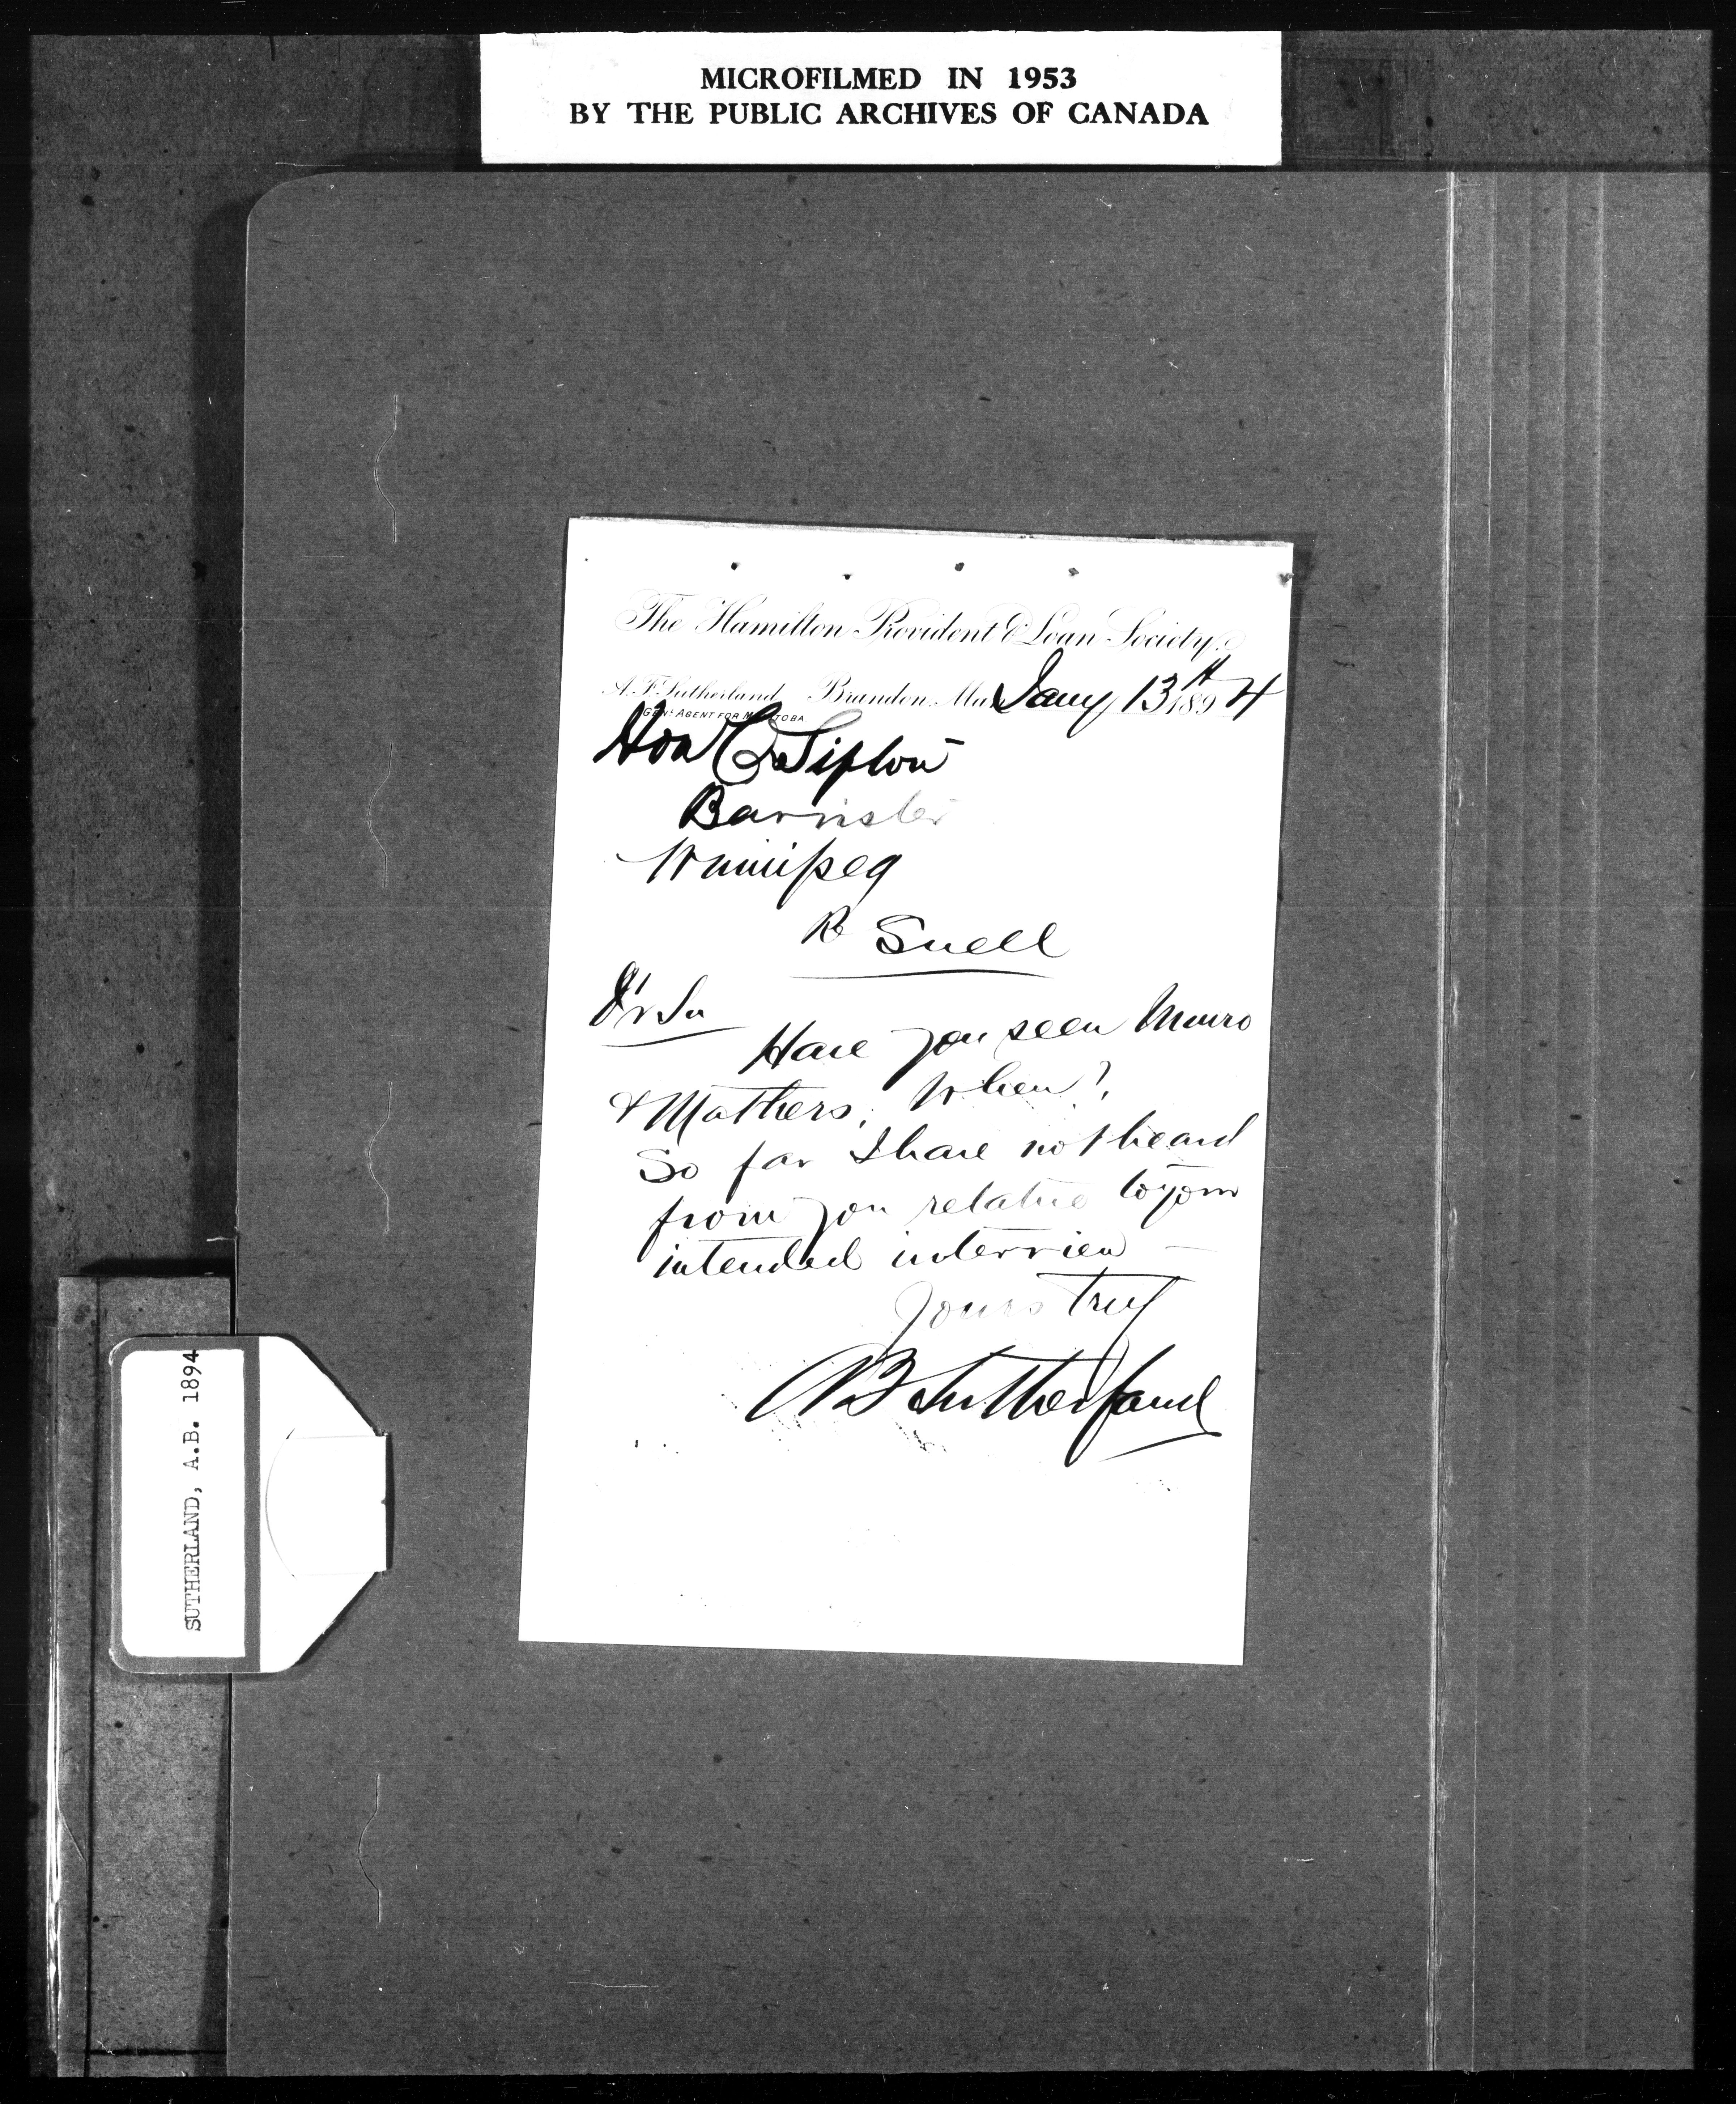 MICROFILMED IN 1953
BY THE PUBLIC ARCHIVES OF CANADA
The Hamilton Provident & Loan Society.
A. F. Sutherland Brandon, Man Jany 13th 1894
GENL AGENT FOR MANITOBA
Hon C Sifton
Barrister
Winnipeg
Re Snell
Dr Sir
Have you seen Munro
& Mathers, When?
So far I have not heard
from you relative to your
intended interview —
Yours truly
Sutherland
SUTHERLAND, A.B. 1894